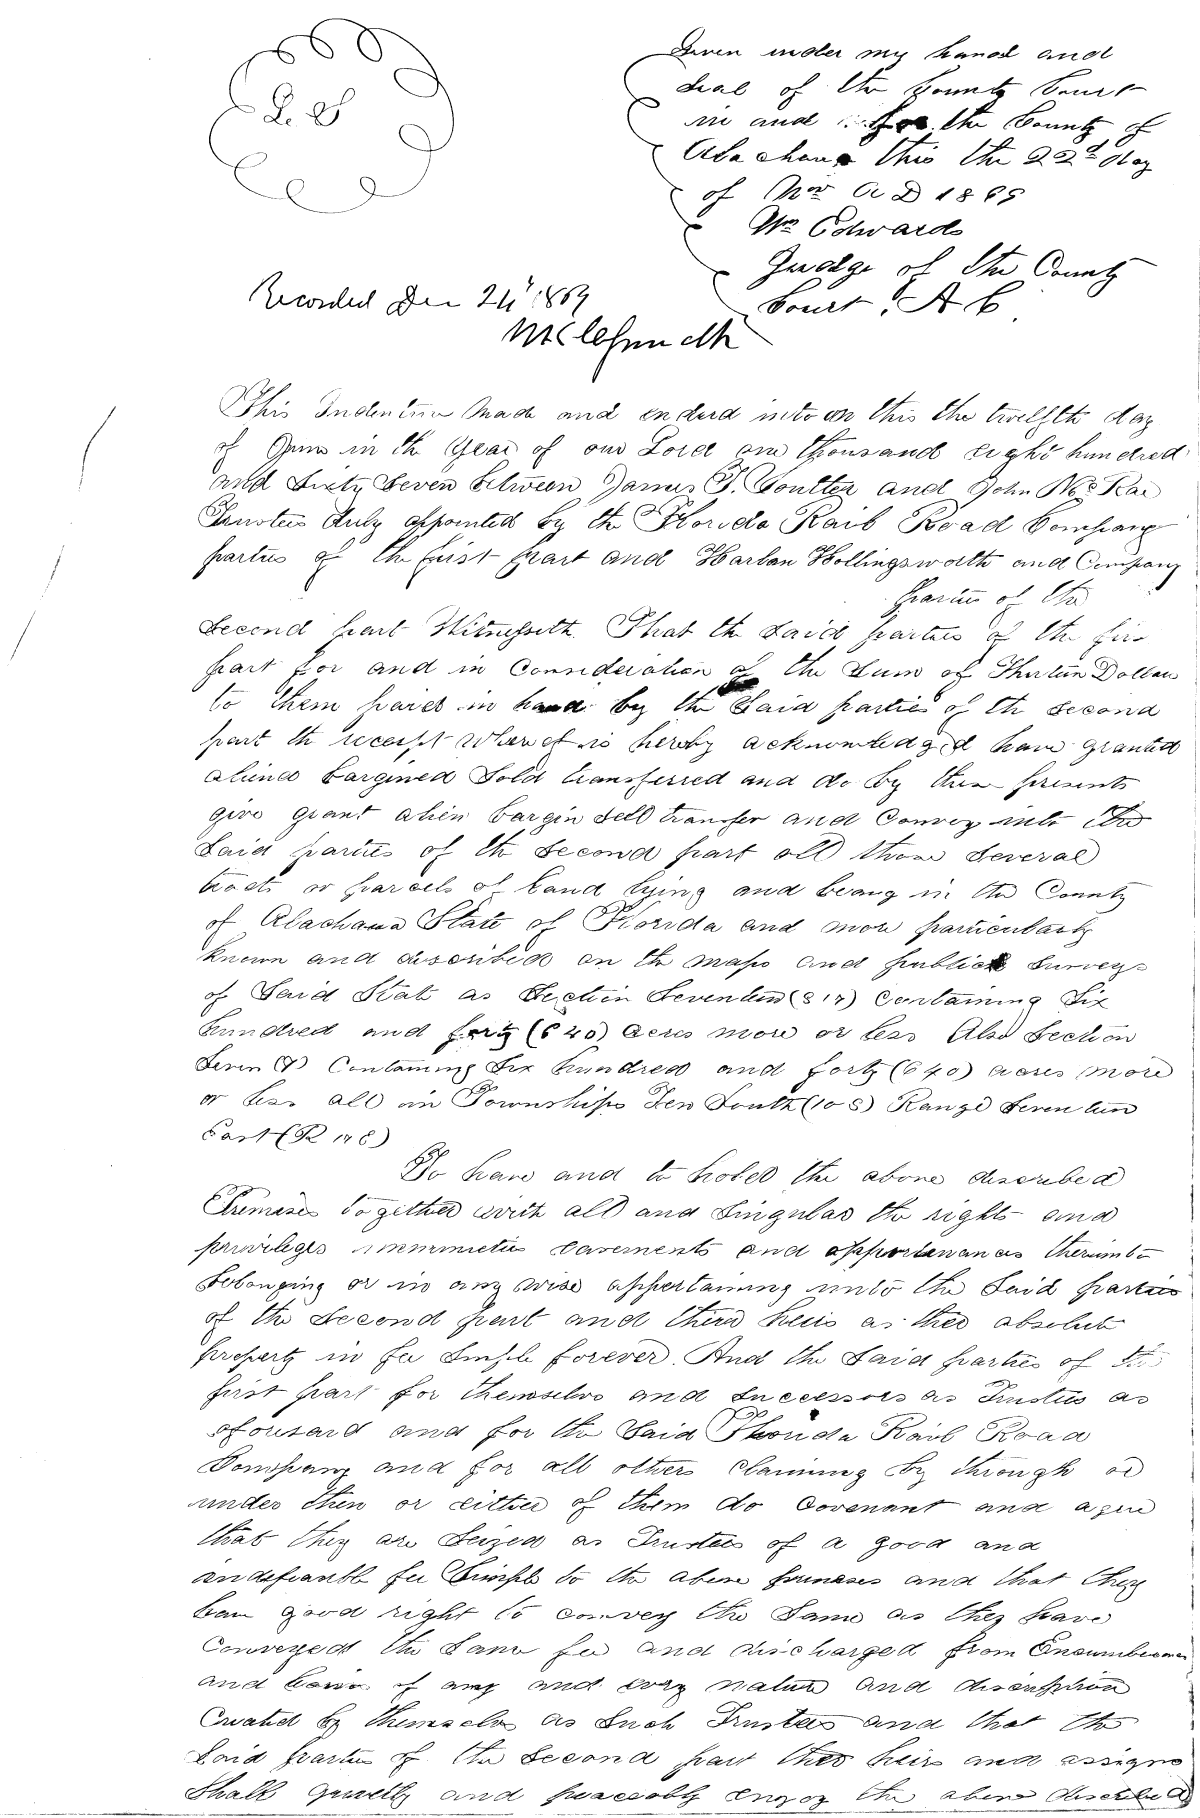 L. S.
Given under my hand and
Seal of the County Court
in and for the County of
Alachua this the 22d day
of Nov A D 1869
Wm Edwards
Judge of the County
Court, A C
Recorded Dec 24th 1869
This Indenture Made and enderd into on this the twelfth day
of June in the Year of our Lord one thousand eight hundred
and Sixty Seven between James T. Soutter and John McRae
Trustees duly appointed by the Florida Rail Road Company
parties of the first part and Harlan Hollingsworth and Company
parties of the
Second part Witnesseth That the Said parties of the firs
part for and in Consideration of the Sum of Thirteen Dollars
to them paied in hand by the Said parties of the Second
part the receipt whereof is hereby acknowledged have granted
aliend bargined Sold transferred and do by these presents
give grant alien bargin Sell transfer and Convey into the
Said parties of the Second part all those Several
tracts or parcels of Land lying and beaing in the County
of Alachaua State of Florida and more particularly
known and described on the maps and public Surveys
of Said State as Section Seventeen (S 17) Containing Six
hundred and forty (640) acres more or less Also Section
Seven (7) Containing Six hundred and forty (640) acres more
or less all in Townships Ten South (10 S) Range Seventeen
East (R 17 E)
To have and to hold the above described
Premises together with all and Singular the rights and
privileges immunities easements and appertenances thereunto
belonging or in any wise appertaining unto the Said parties
of the Second part and their heirs as their absolute
property in fee Simple forever. And the Said parties of the
first part for themselves and Successors as Trustees as
aforesaid and for the Said Florida Rail Road
Company and for all others claiming by through or
under them or either of them do Covenant and agree
that they are Seized as Trustees of a good and
indefeasible fee Simple to the above premises and that they
have good right to convey the Same as they have
Conveyed the Same free and discharged from Encumbrances
and of any and every nature and discription
Created by themselves as Such Trustees and that the
Said parties of the Second part their heirs and assigns
Shall quietly and peaceably enjoy the above described